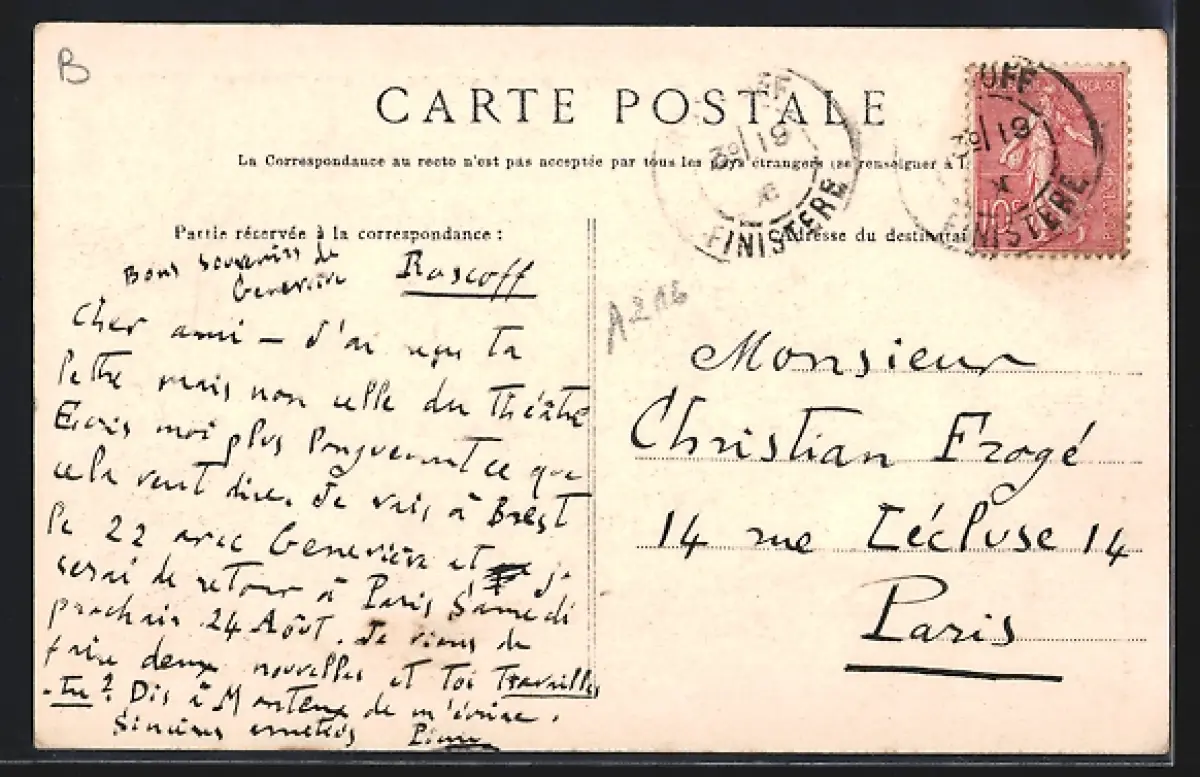 B
CARTE POSTALE
La Correspondance au recto n'est pas acceptée par tous les pays étrangers (se renseigner à l
UFF
19
FINISTERE
UFF
19
FINISTERE
10
Partie réservée à la correspondance :
Adresse du destinatai
Bons souvenirs de
Geneviève
Roscoff
Cher ami – J'ai reçu ta
lettre mais non celle du Théâtre
Ecris moi plus longuement ce que
cela veut dire. Je vais à Brest
le 22 avec Geneviève et je
serai de retour à Paris Samedi
prochain 24 Août. Je viens de
faire deux nouvelles et toi Travailles
-tu? Dis à de m'écrire.
Sincères amitiés Pierre
A216
Monsieur
Christian Frogé
14 rue Lécluse 14
Paris